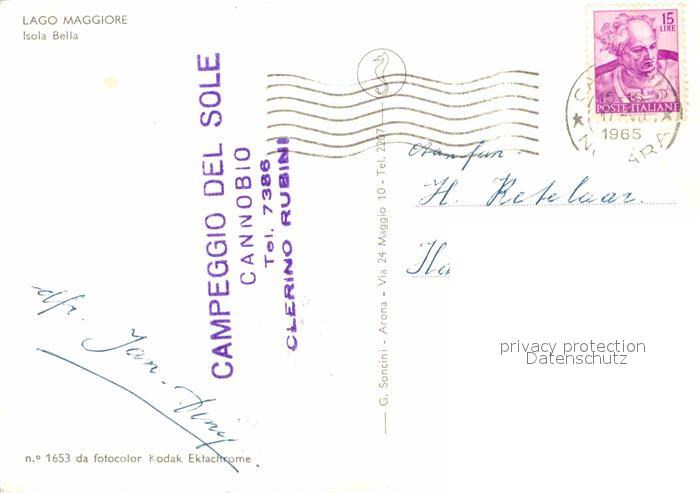 LAGO MAGGIORE
Isola Bella
15
LIRE
POSTE ITALIANE
1965
CAMPEGGIO DEL SOLE
CANNOBIO
Tel. 7386
CLERINO RUBINI
G. Soncini - Arona - Via 24 Maggio 10 - Tel. 2207
H. Ketelaar.
Ha
privacy protection
Datenschutz
dfz. Jan-Deny
n.º 1653 da fotocolor Kodak Ektachrome